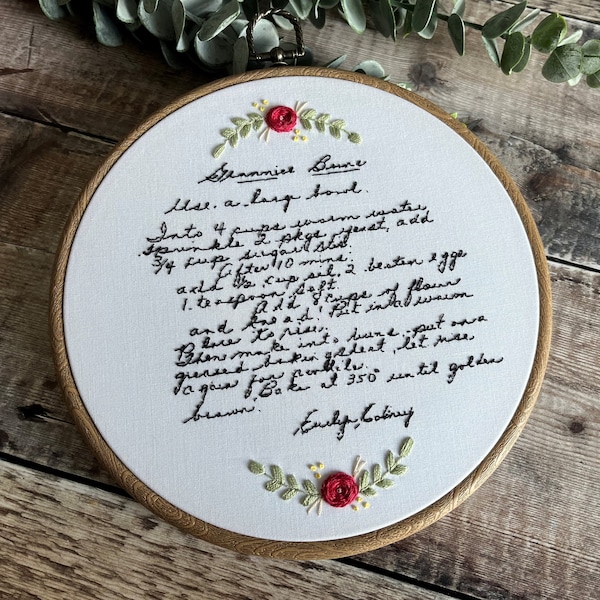 Grannnies Buns
Use a larg bowl.
Into 4 cups warm water
sprinkle 2 pkgs yeast, add
3/4 cup sugar, stir
After 10 mins.
add 1/2 cup oil, 2 beaten eggs
1 teaspoon salt.
Add 8 cups of flour
and knead! Put in a warm
place to rise.
Then make into buns, put on a
greased baking sheet, let rise
again for awhile.
Bake at 350° until golden
brown.
Evelyn